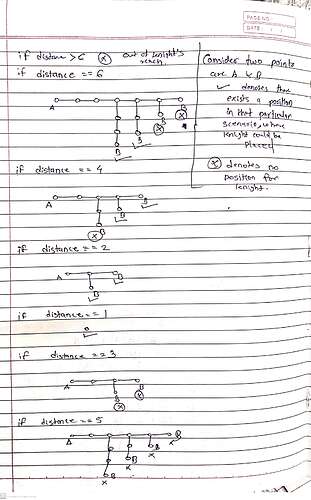 PAGE NO.
DATE
if distance > 6 (x) out of knight's
reach.
if distance == 6
A
B
B
B
B
x
x
Consider two points
are A & B
✓ denotes there
exists a position
in that particular
scenario, where
knight could be
placed
(x) denotes no
position for
knight.
if distance == 4
A
B
B
B
x
if distance == 2
A
B
B
if distance == 1
if distance == 3
A
B
B
x
x
if distance == 5
A
B
B
B
B
x
x
x